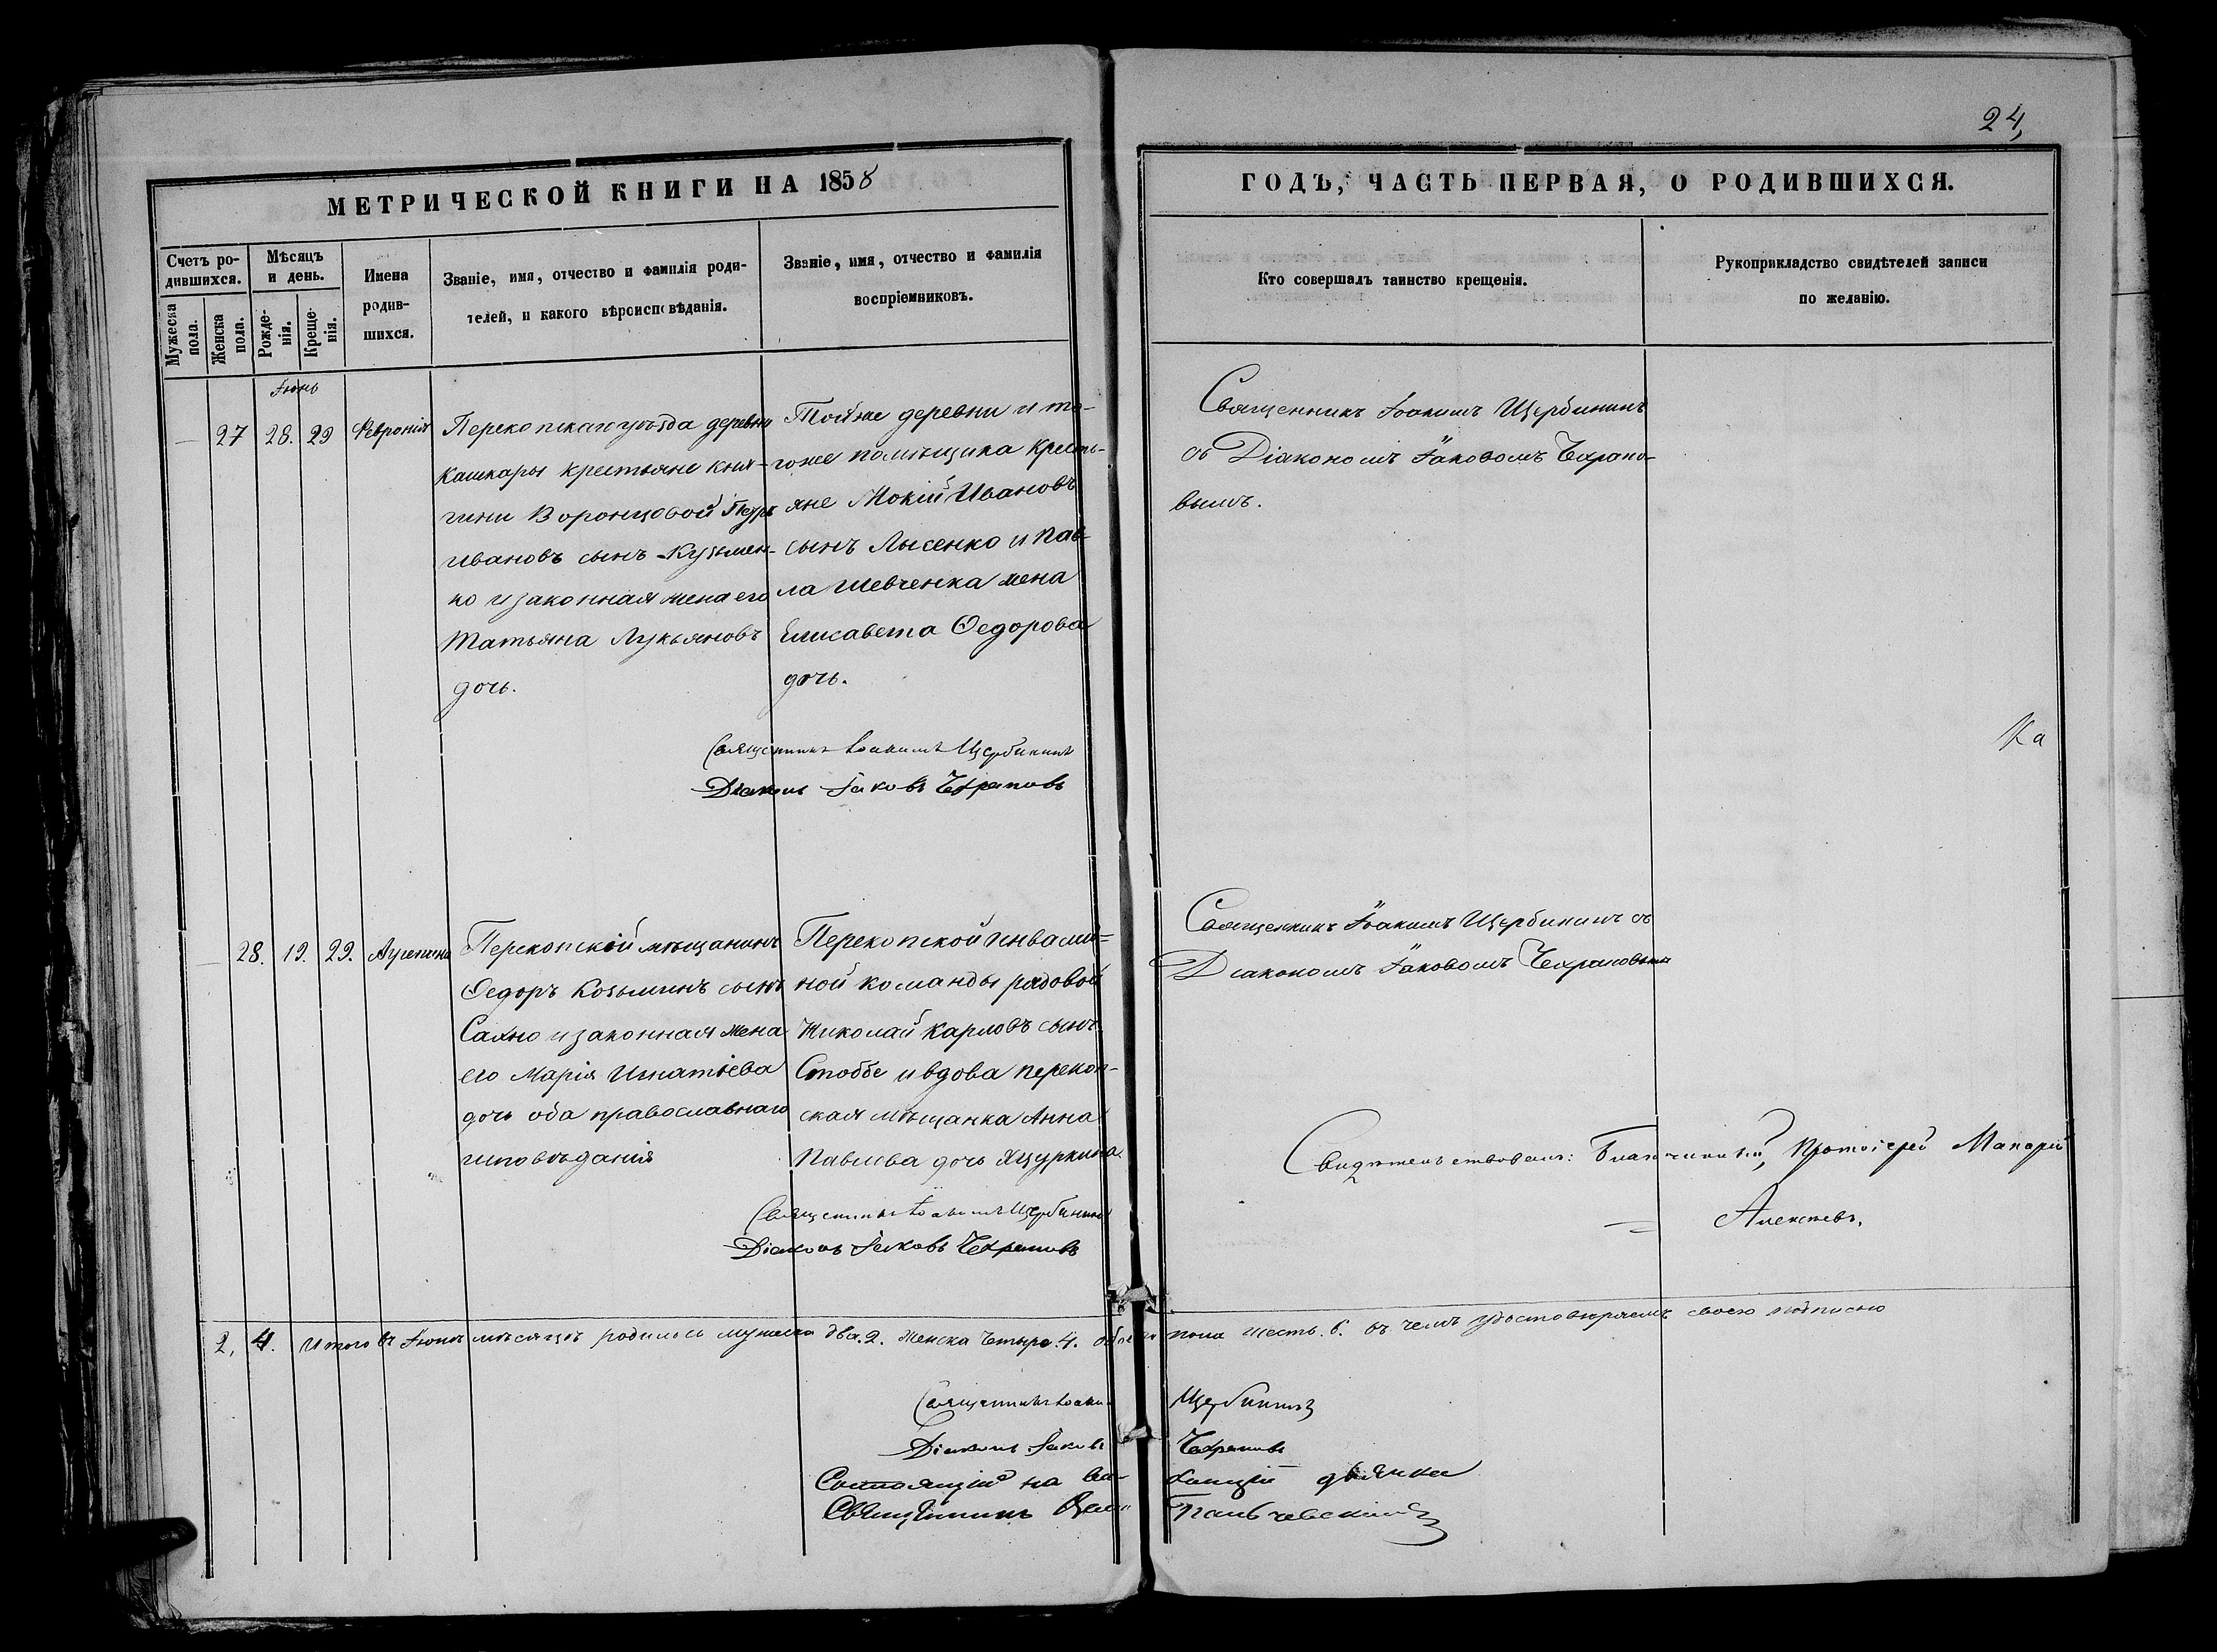 24,
МЕТРИЧЕСКОЙ КНИГИ НА 1858
ГОДЪ, ЧАСТЬ ПЕРВАЯ, О РОДИВШИХСЯ.
Счетъ ро-
дившихся.
Мужеска
пола.
Женска
пола.
Мѣсяцъ
и день.
Рожде-
нія.
Креще-
нія.
Имена
родив-
шихся.
Званіе, имя, отчество и фамилія роди-
телей, и какого вѣроисповѣданія.
Званіе, имя, отчество и фамилія
воспріемниковъ.
Кто совершалъ таинство крещенія.
Рукоприкладство свидѣтелей записи
по желанію.
Іюнь
— 27 28. 29 Февронія
Перекопскаго уѣзда деревни
Кашкары крестьяне кня-
гини Воронцовой Петръ
Ивановъ сынъ Кузьмен-
ко и законная жена его
Татьяна Лукьяновъ
дочь.
Той же деревни и то-
гоже помѣщика кресть-
яне Мокій Ивановъ
сынъ Лысенко и Пав-
ла Шевченка жена
Елисавета Ѳедорова
дочь.
Священникъ Іоакимъ Щербининъ
съ Діакономъ Іаковомъ Чехрано-
вымъ.
Священникъ Іоакимъ Щербининъ
Діаконъ Іаковъ Чехрановъ
— 28. 19. 29. Агрепина
Перекопскій мѣщанинъ
Ѳедоръ Козьминъ сынъ
Сахно и законная жена
его Марія Игнатіева
дочь оба православнаго
исповѣданія
Перекопской инвалид=
ной команды рядовой
Николай Карловъ сынъ
Стоббе и вдова перекоп-
ская мѣщанка Анна
Павлова дочь Ящуркина
Священникъ Іоакимъ Щербининъ съ
Діакономъ Іаковомъ Чехрановымъ
Священникъ Іоакимъ Щербининъ
Діаконъ Іаковъ Чехрановъ
Свидѣтельствовалъ: Благочинный, Протоіерей Макарій
Алексѣевъ.
2, 4. Итого въ Іюнѣ мѣсяцѣ родилось мужеска два. 2. женска четыре. 4. обоего пола шесть. 6. въ чемъ удостовѣряемъ своею подписью
Священникъ Іоакимъ Щербининъ
Діаконъ Іаковъ Чехрановъ
Состоящій на вакансіи дьячка
Священникъ